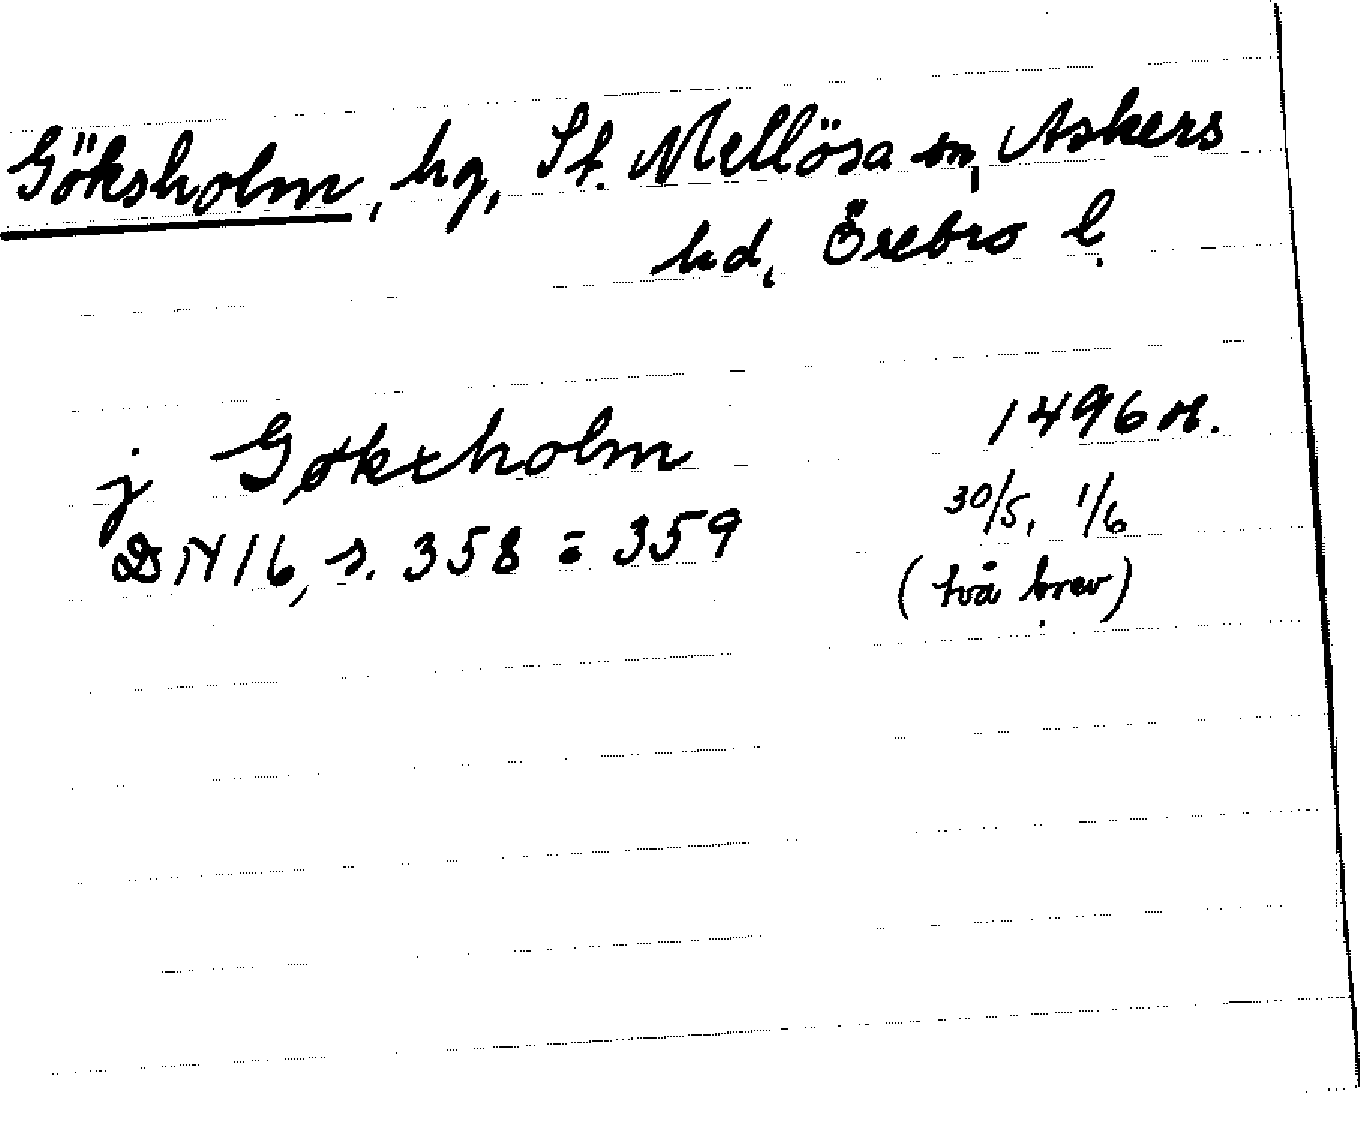 Göksholm, hg, St. Mellösa sn, Askers
hd, Örebro l.
j Gøkxholm 1496 or.
DN 16, s. 358-359 30/5, 1/6
(två brev)